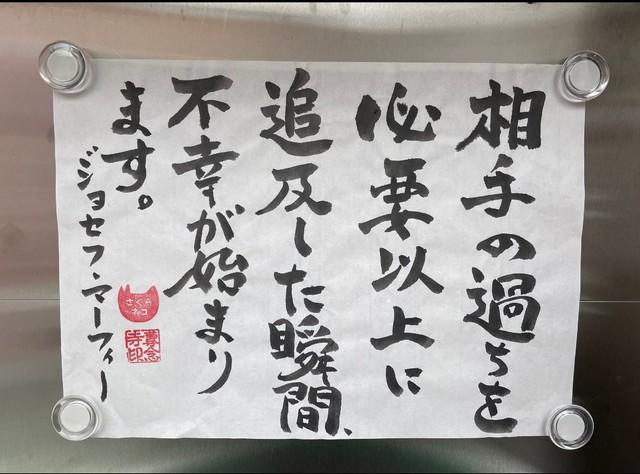 相手の過ちを
必要以上に
追及した瞬間、
不幸が始まり
ます。
ジョセフ・マーフィー
さくら
ネコ